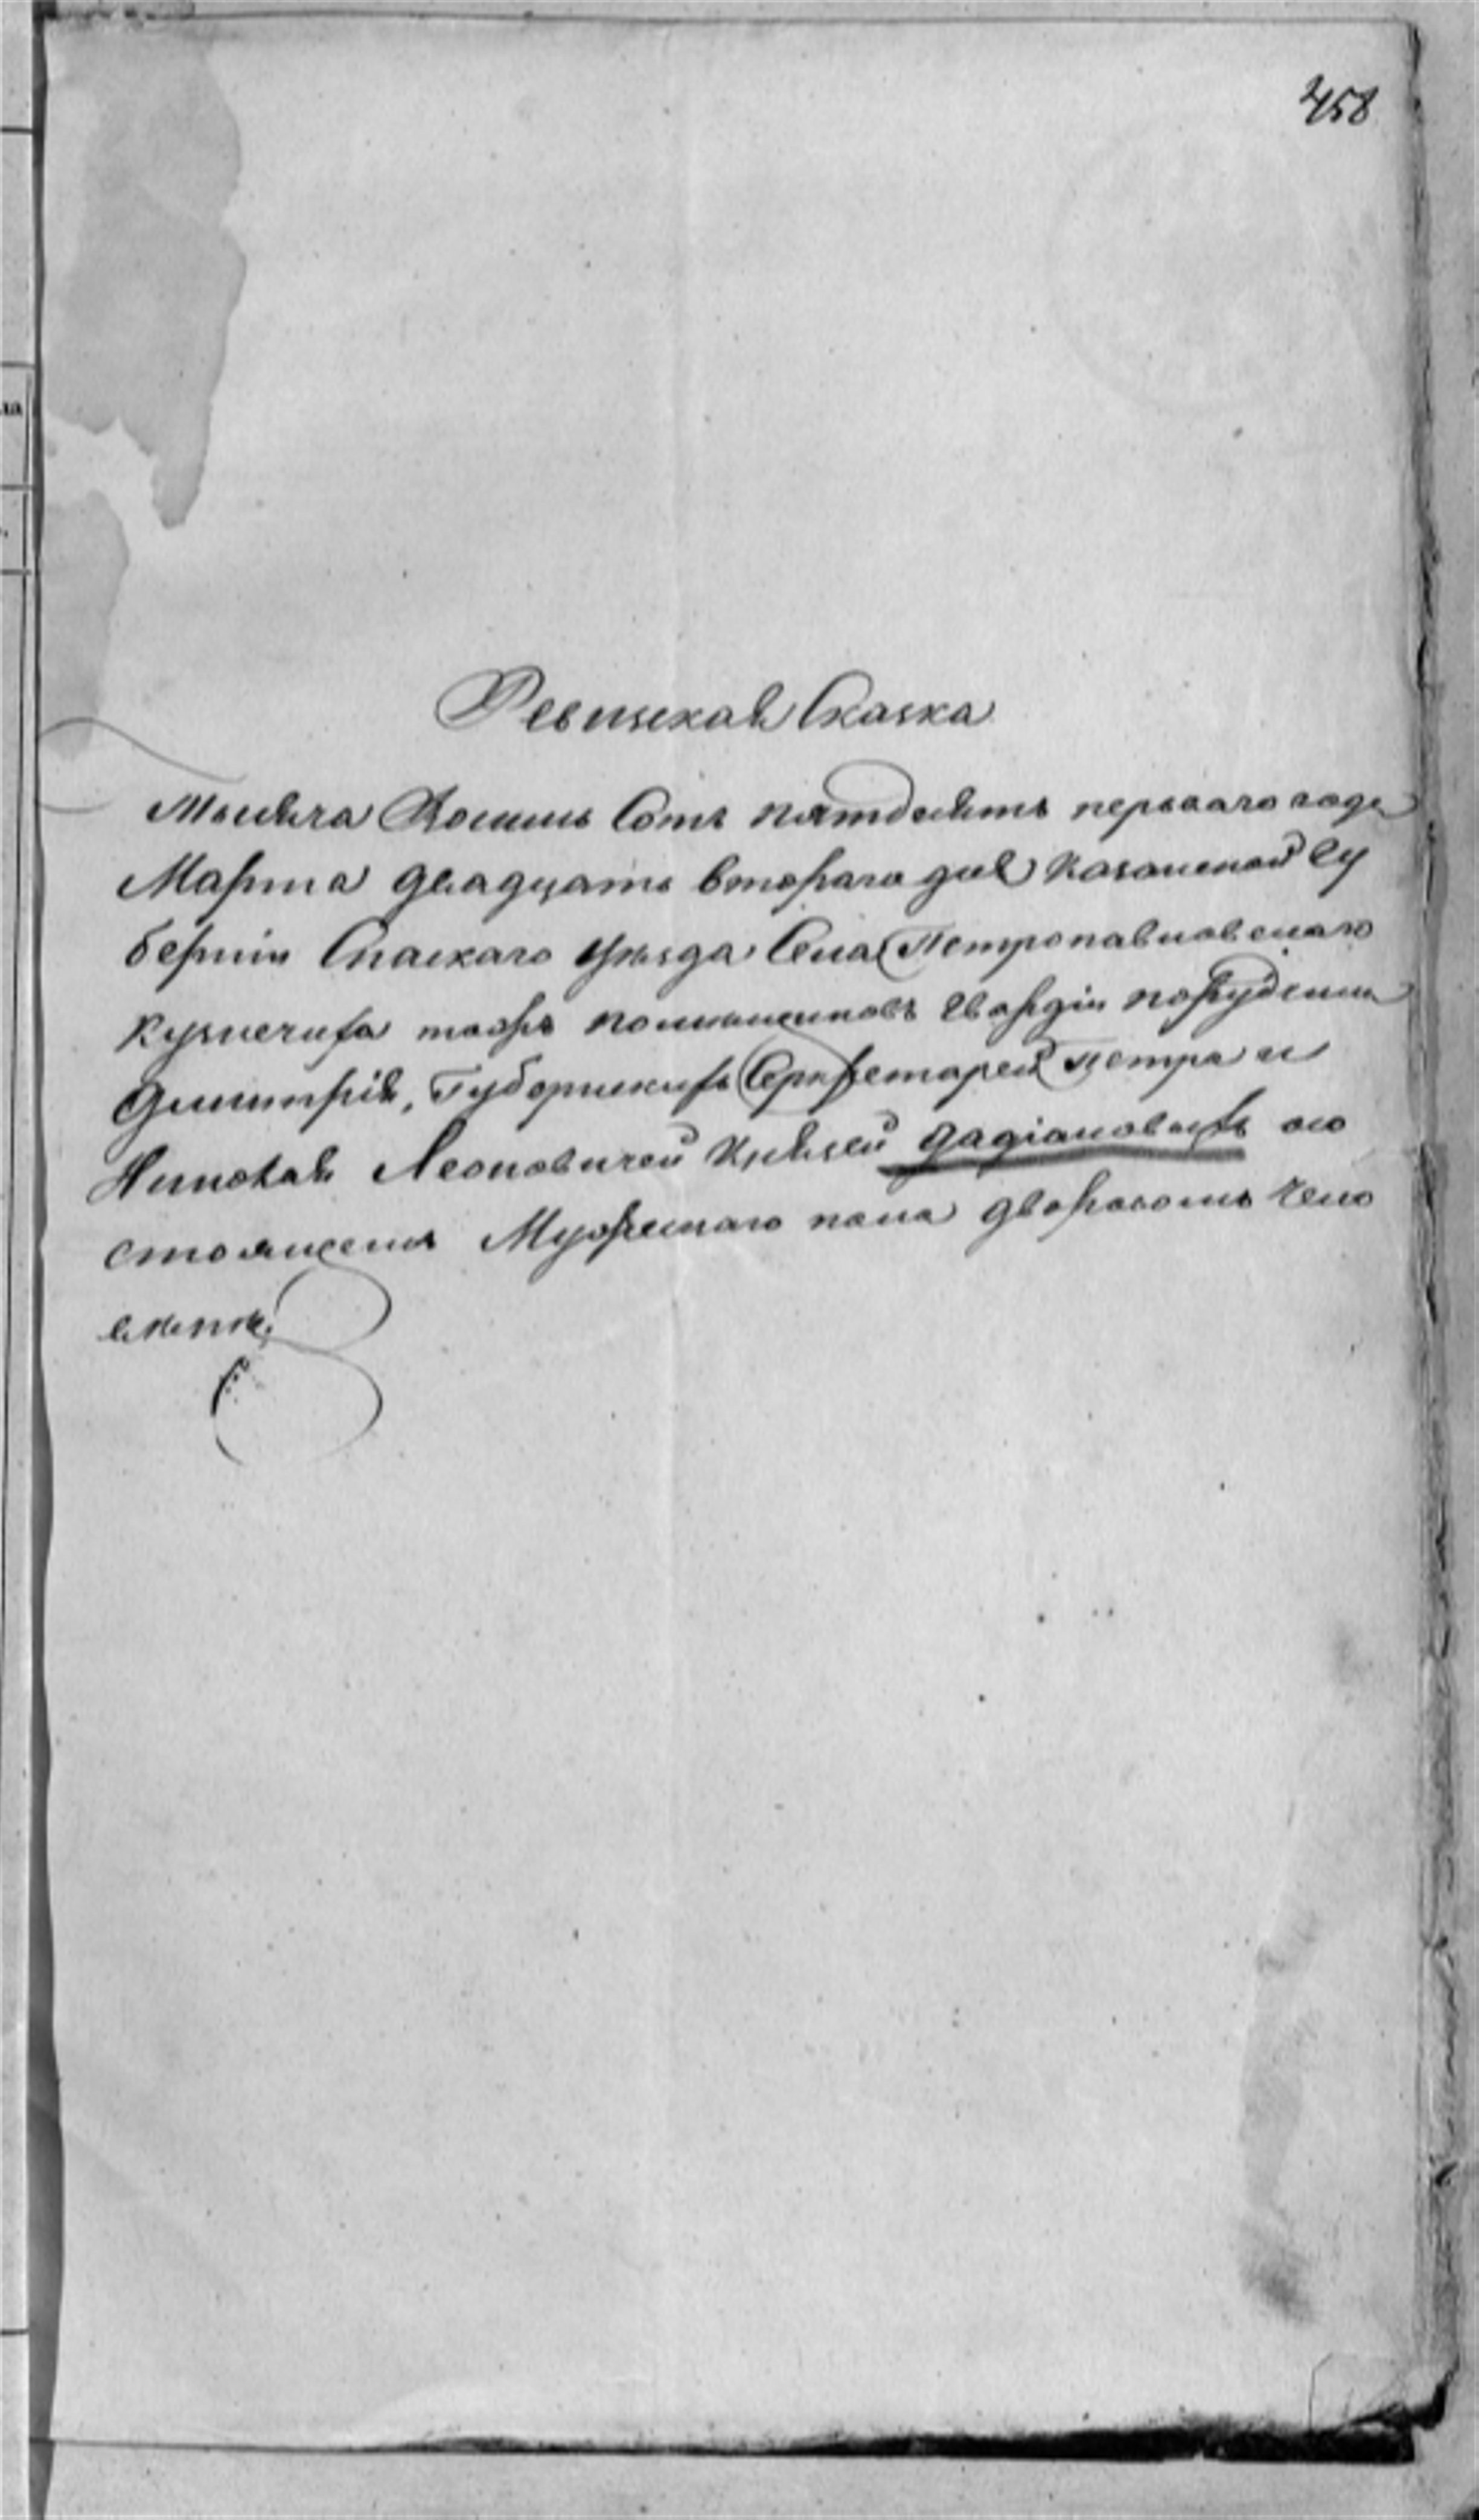 458
Ревизская Сказка
Тысяча Восемь Сотъ пятдесятъ перьваго года
Марта двадцать втораго дня Казанской Гу
берніи Спаскаго уѣзда Села Петропавловскаго
Кузнечиха тожъ помѣщиковъ Гвардіи порудчика
Дмитрія, Губернскихъ Секретарей Петра и
Николая Леоновичей Князей Дадіановыхъ о
состоящемъ Мужескаго пола дворовомъ чело
вѣкѣ